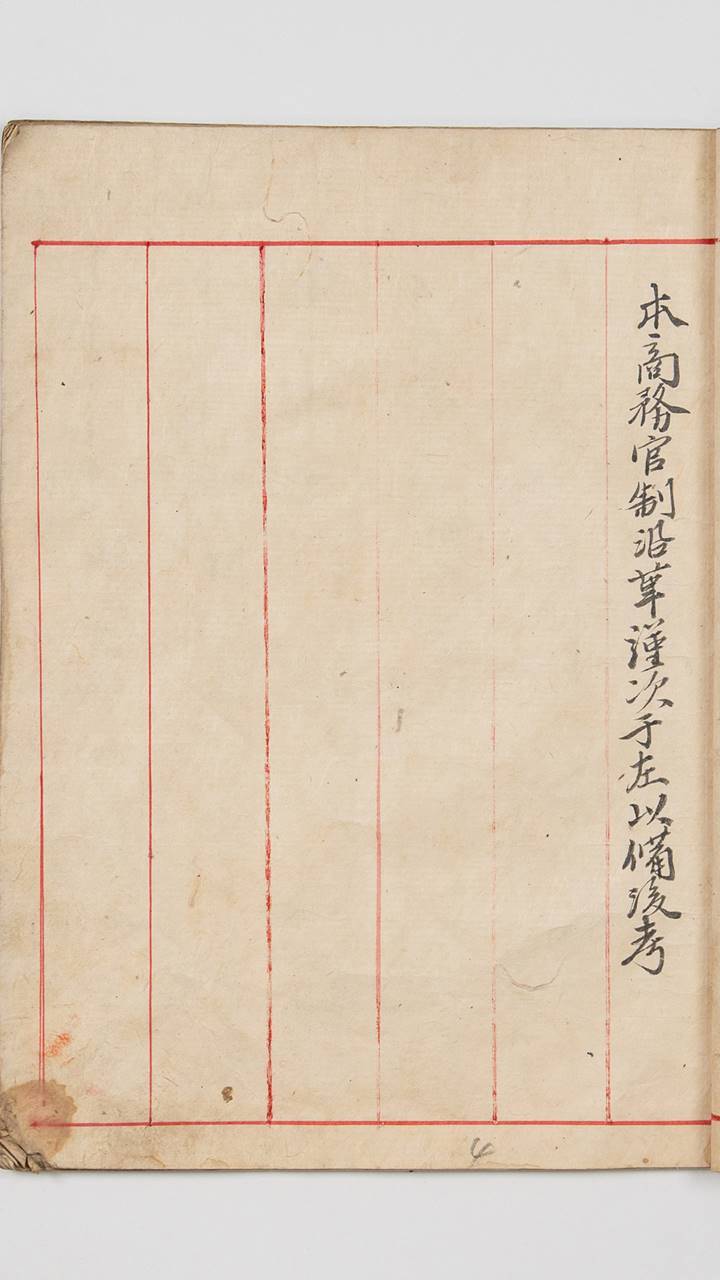 本商務官制沿革謹次于左以備後考
4